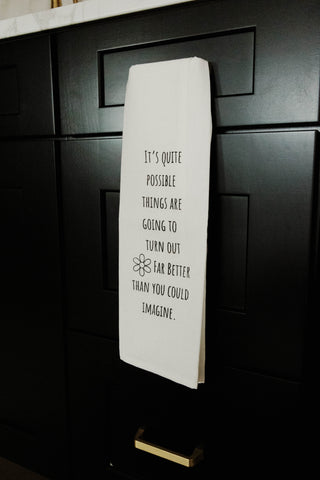 It's quite
possible
things are
going to
turn out
Far Better
than you could
imagine.